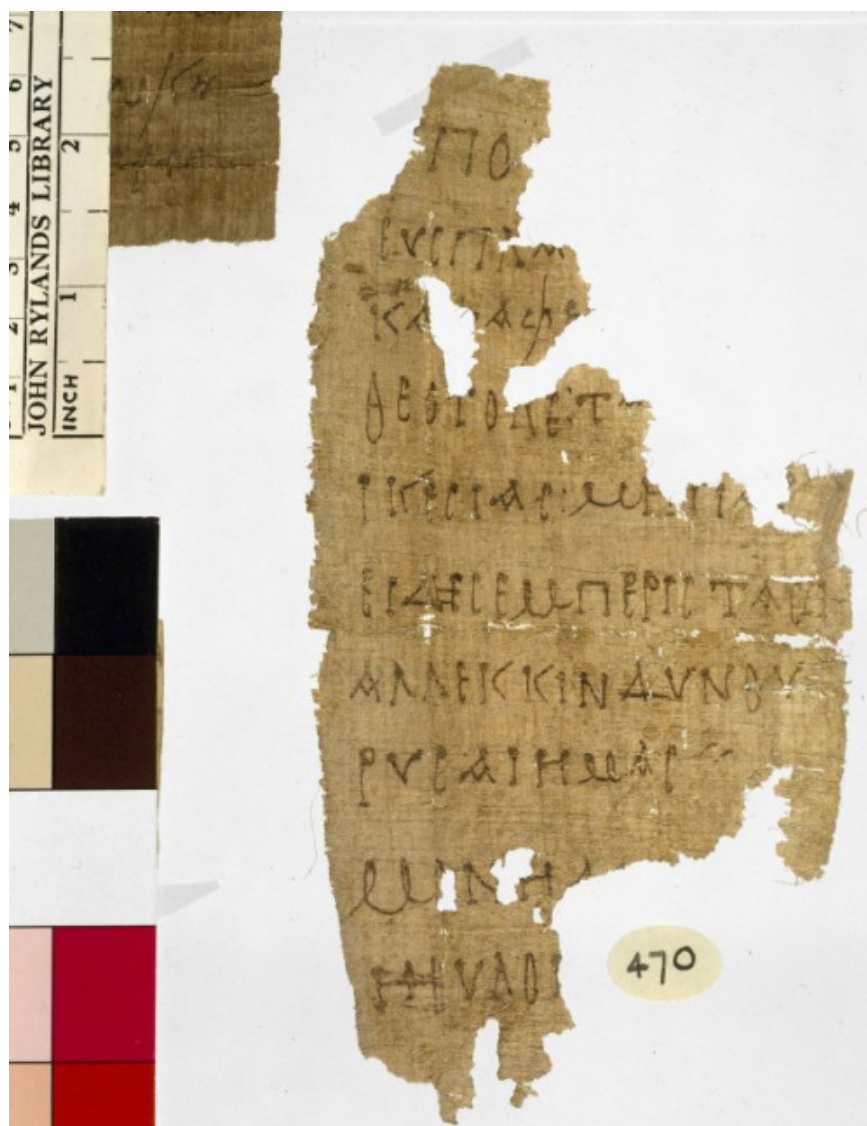 JOHN RYLANDS LIBRARY
1 2 3 4 5 6 7
INCH 1 2
ΠΟ
ΕΥCΠΑ
ΚΑΤΑΦΕ
ΘΕΟΤΟΚΕΤ
ΙΚΕCΙΑCΜΗΠΑΡ
ΕΙΔΗCΕΜΠΕΡΙCΤΑCΕΙ
ΑΛΛΕΚΚΙΝΔΥΝΟΥ
ΡΥCΑΙΗΜΑC
ΜΟΝΗ
ΗΕΥΛΟΓ
470